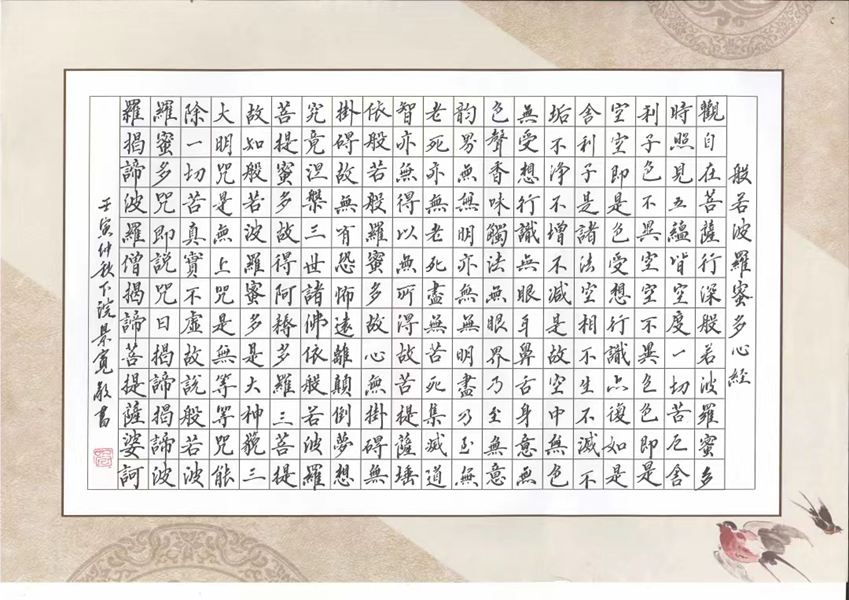 般若波羅蜜多心經
觀自在菩薩行深般若波羅蜜多
時照見五蘊皆空度一切苦厄舍
利子色不異空空不異色色即是
空空即是色受想行識亦復如是
舍利子是諸法空相不生不滅不
垢不净不增不減是故空中無色
無受想行識無眼耳鼻舌身意無
色聲香味觸法無眼界乃至無意
韵界無無明亦無無明盡乃至無
老死亦無老死盡無苦死集滅道
智亦無得以無所得故苦提薩埵
依般若般羅蜜多故心無掛碍無
掛碍故無有恐怖遠離顛倒夢想
究竟涅槃三世諸佛依般若波羅
菩提蜜多故得阿耨多羅三菩提
故如般若波羅蜜多是大神貌三
大明咒是無上咒是無等等咒能
除一切苦真實不虛故說般若波
羅蜜多咒即說咒曰揭諦揭諦波
羅揭諦波羅僧揭諦菩提薩婆訶
壬寅仲秋下浣景寬敬書